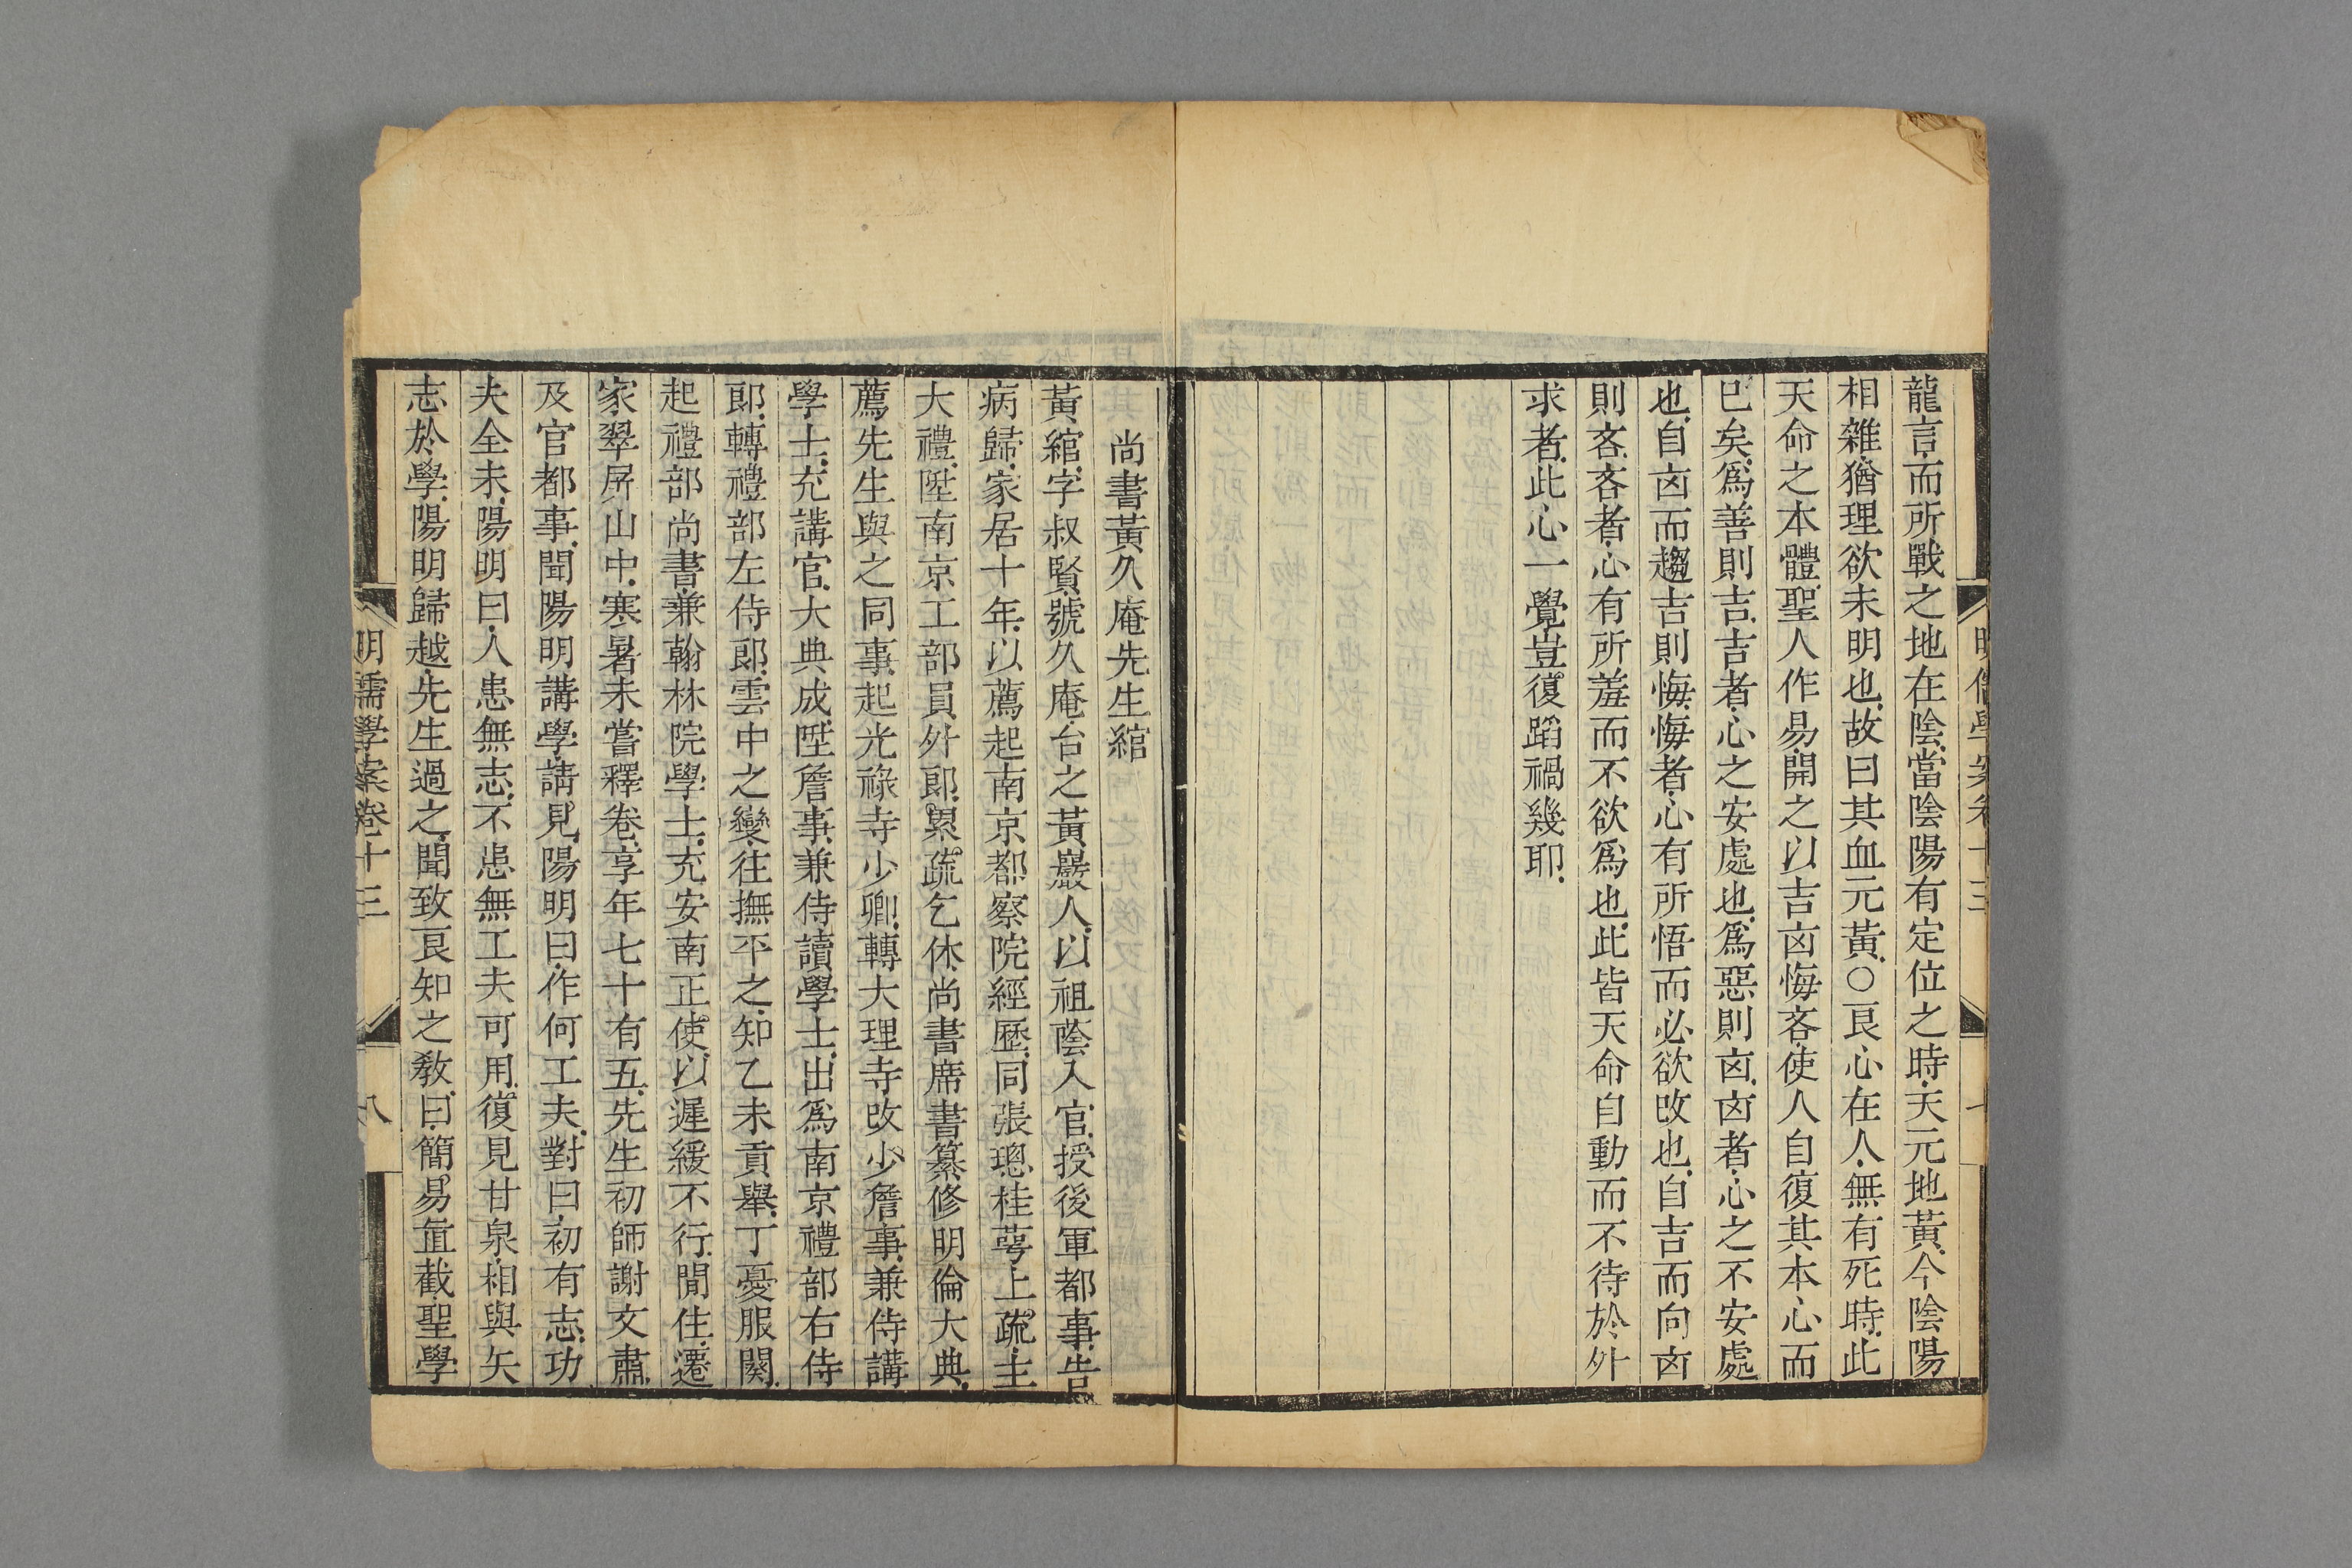 龍言而所戰之地在陰當陰陽有定位之時天元地黃今陰陽
相雜猶理欲未明也故曰其血元黃○良心在人無有死時此
天命之本體聖人作易開之以吉凶悔吝使人自復其本心而
已矣爲善則吉吉者心之安處也爲惡則凶凶者心之不安處
也自凶而趨吉則悔悔者心有所悟而必欲改也自吉而向凶
則吝吝者心有所羞而不欲爲也此皆天命自動而不待於外
求者此心一覺豈復蹈禍幾耶
尚書黃久庵先生綰
黃綰字叔賢號久庵台之黃巖人以祖蔭入官授後軍都事告
病歸家居十年以薦起南京都察院經歷同張璁桂萼上疏主
大禮陞南京工部員外郎累疏乞休尚書席書纂修明倫大典
薦先生與之同事起光祿寺少卿轉大理寺改少詹事兼侍講
學士充講官大典成陞詹事兼侍讀學士出爲南京禮部右侍
郎轉禮部左侍郎雲中之變往撫平之知乙未貢舉丁憂服闋
起禮部尚書兼翰林院學士充安南正使以遲緩不行閒住遷
家翠屏山中寒暑未嘗釋卷享年七十有五先生初師謝文肅
及官都事聞陽明講學請見陽明曰作何工夫對曰初有志功
夫全未陽明曰人患無志不患無工夫可用復見甘泉相與矢
志於學陽明歸越先生過之聞致良知之敎曰簡易直截聖學
明儒學案卷十三
八